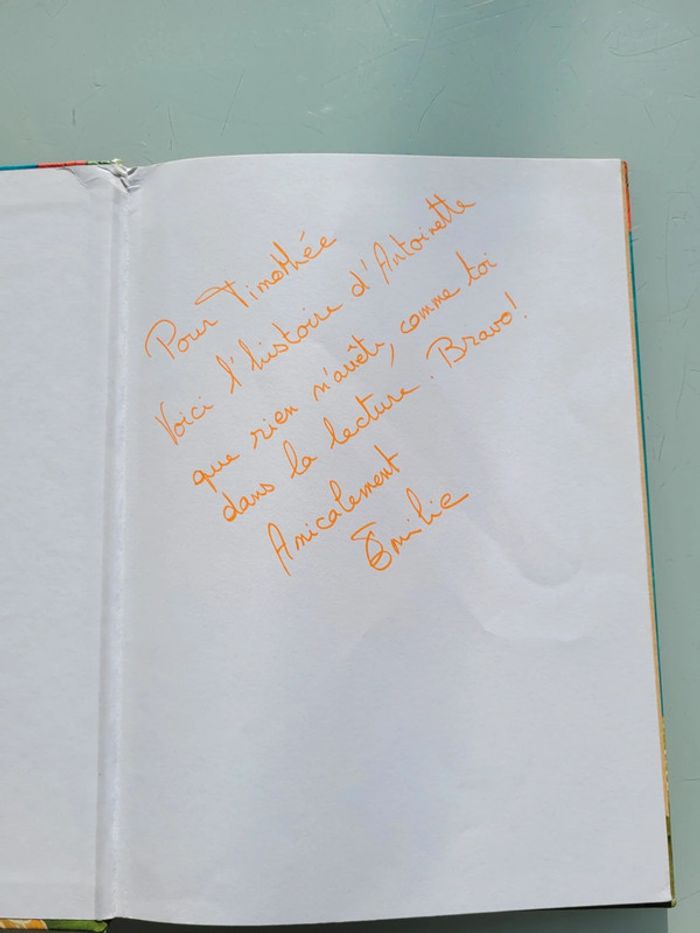 Pour Timothée
Voici l'histoire d'Antoinette
que rien n'arrête, comme toi
dans la lecture. Bravo!
Amicalement
Émilie